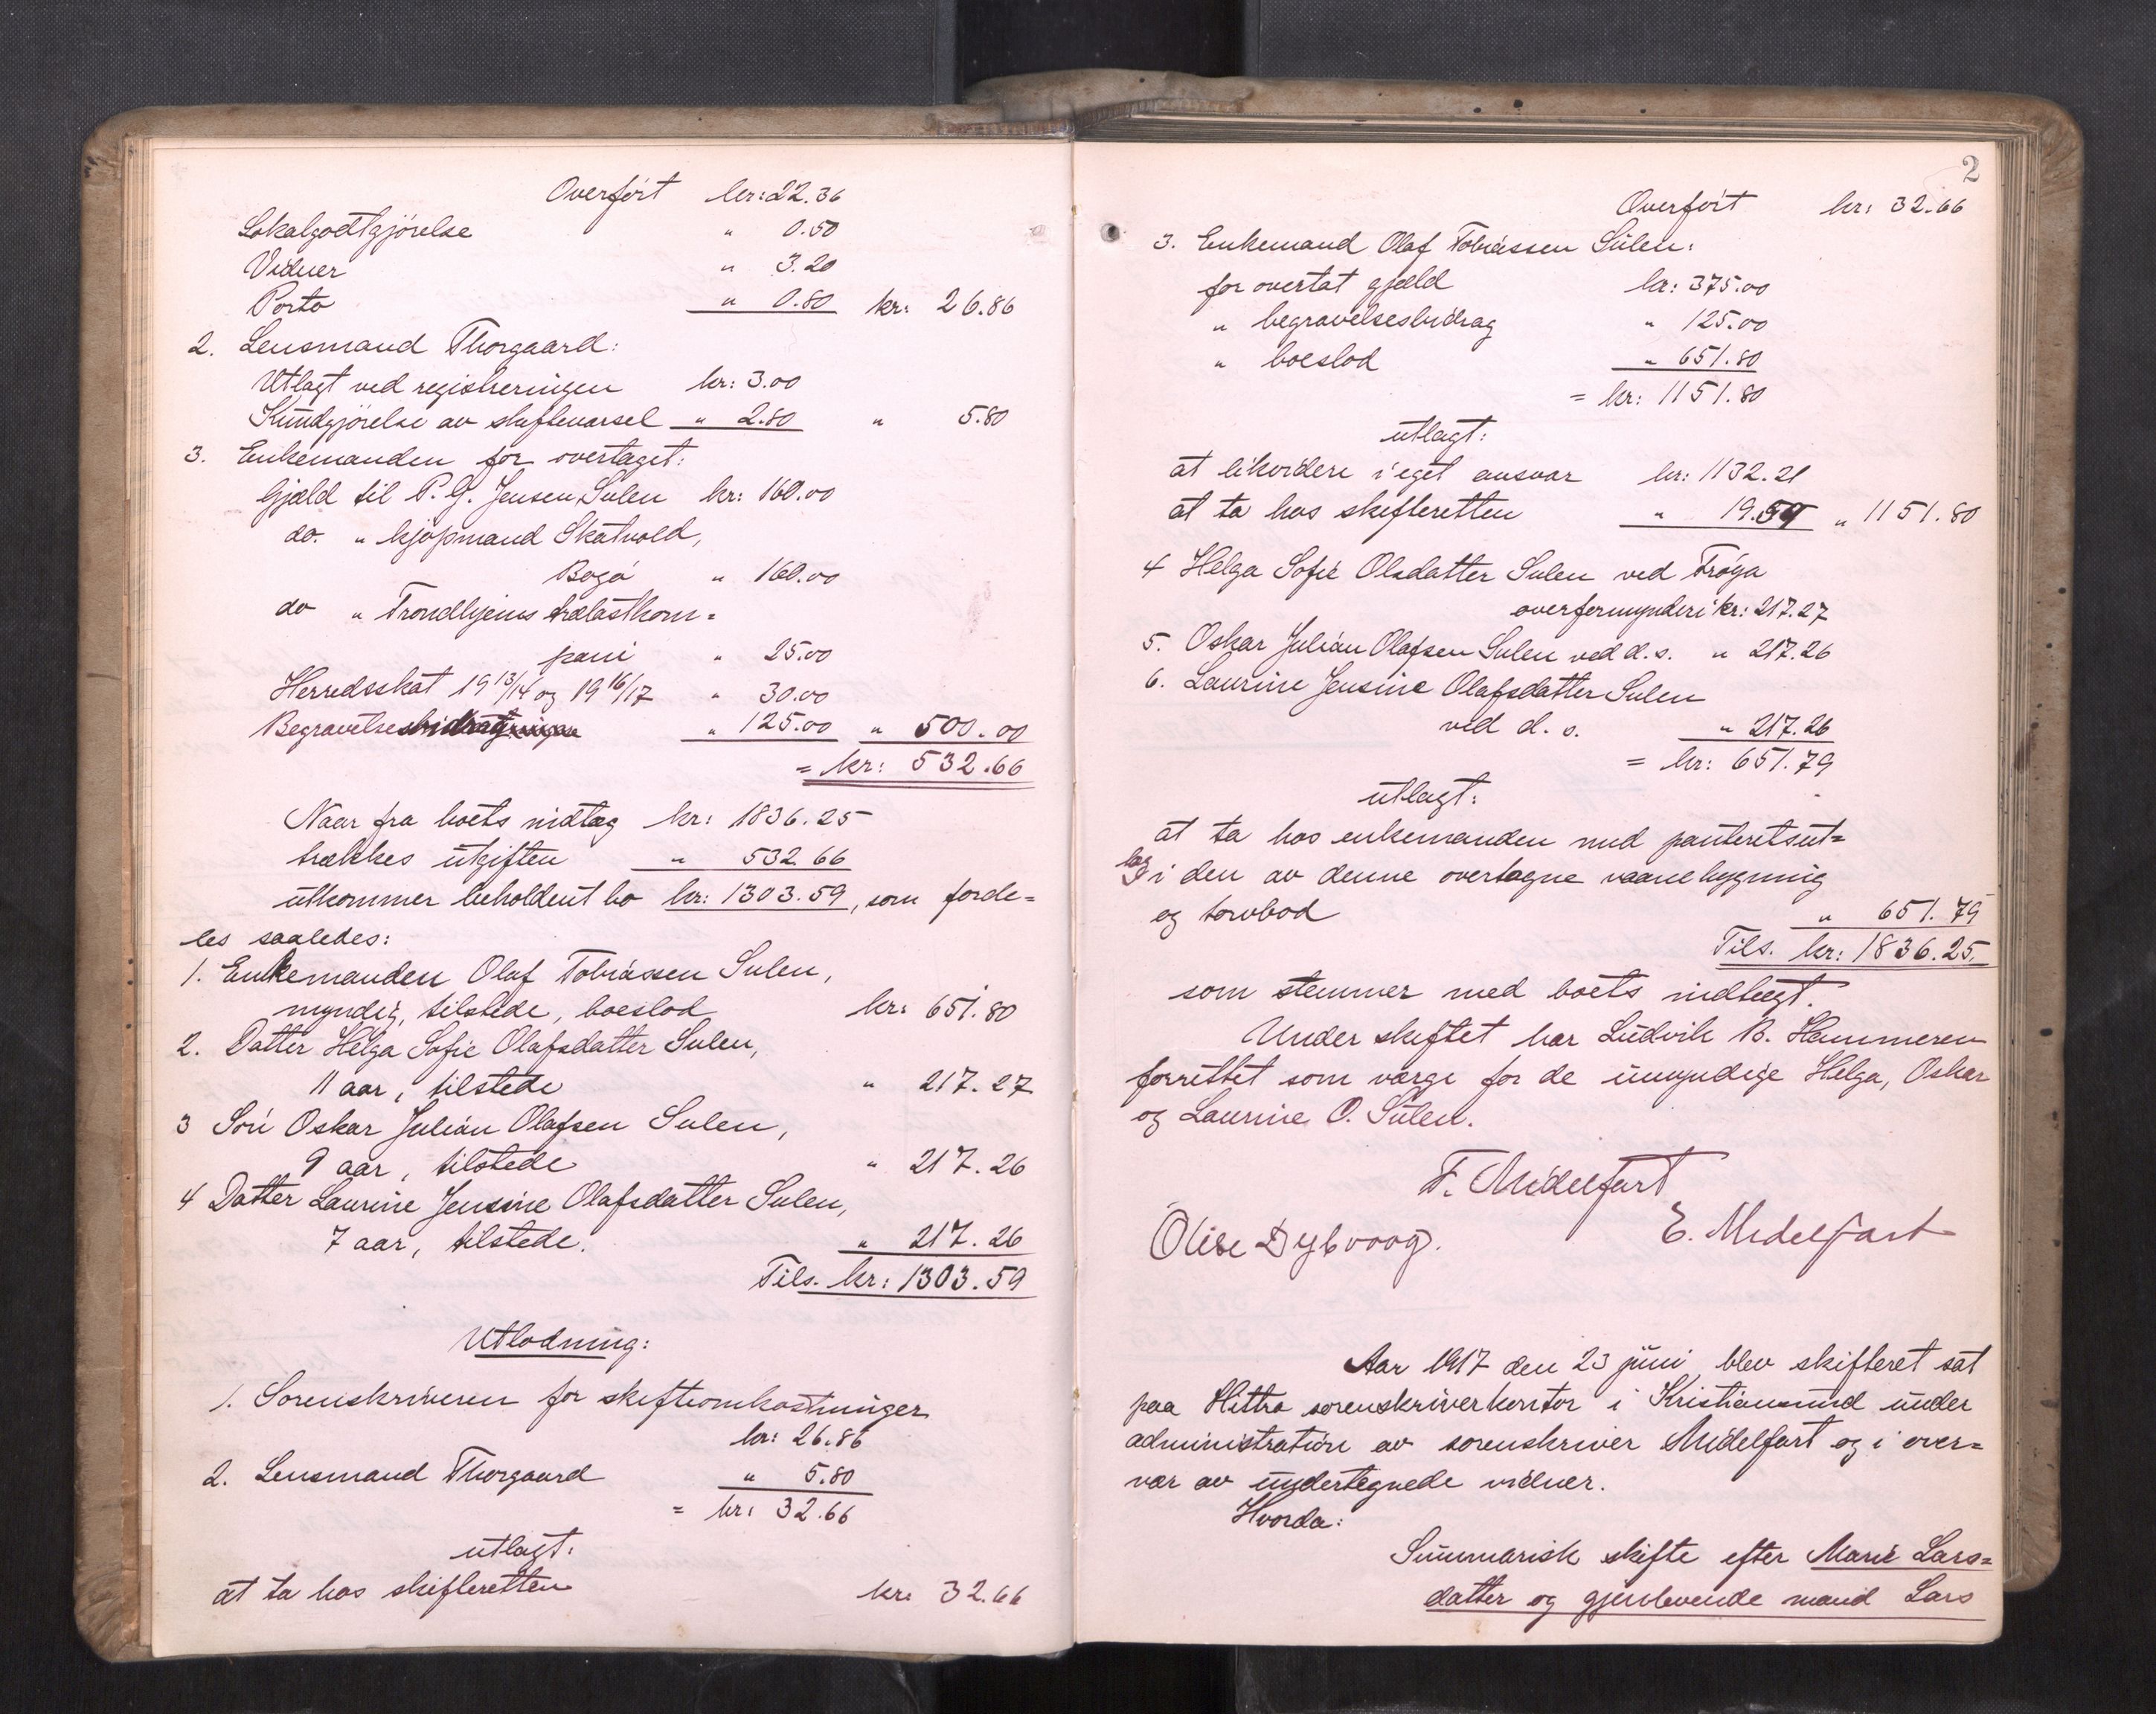 Overført kr: 22.36
Lokalgodtgjørelse " 0.50
Vidner " 3.20
Porto " 0.80 kr: 26.86
2. Lensmand Thorgaard:
Utlagt ved registreringen kr: 3.00
Kundgjørelse av skiftevarsel " 2.80 " 5.80
3. Enkemanden for overtaget:
Gjæld til P. G. Jensen Sulen kr: 160.00
do. " kjøpmand Skatvold,
Bogø " 160.00
do " Trondhjems trælastkom=
pani " 25.00
Herredsskat 19 13/14 og 19 16/17 " 30.00
Begravelsesbidrag " 125.00 " 500.00
= kr: 532.66
Naar fra boets indtæg kr: 1836.25
trækkes utgiften " 532 66
utkommer beholdent bo kr: 1303.59, som forde=
les saaledes:
1. Enkemanden Olaf Tobiassen Sulen,
myndig, tilstede, boeslod kr: 651.80
2. Datter Helga Sofie Olafsdatter Sulen,
11 aar, tilstede " 217.27
3 Søn Oskar Julian Olafsen Sulen,
9 aar, tilstede " 217.26
4 Datter Laurine Jensine Olafsdatter Sulen,
7 aar, tilstede. " 217.26
Tils. kr: 1303.59
Utlodning:
1. Sorenskriveren for skifteomkostninger
kr: 26.86
2. Lensmand Thorgaard " 5.80
= kr: 32.66
utlagt:
at ta hos skifteretten kr. 32.66
2
Overført kr: 32.66
3. Enkemand Olaf Tobiassen Sulen:
for overtat gjæld kr: 375.00
" begravelsesbidrag " 125.00
" boeslod " 651.80
= kr: 1151.80
utlagt:
at likvidere i eget ansvar kr: 1132.21
at ta hos skifteretten " 19.59 " 1151.80
4 Helga Sofie Olsdatter Sulen ved Frøya
overformynderi kr: 217.27
5. Oskar Julian Olafsen Sulen ved d. s. " 217.26
6. Laurine Jensine Olafsdatter Sulen
ved d. s. " 217.26
= kr: 651.79
utlagt:
at ta hos enkemanden med panteretsut=
læg i den av denne overtagne vaanebygning
og torvbod " 651.79
Tils. kr: 1836.25.
som stemmer med boets indtægt.
Under skiftet har Ludvik B. Hammeren
forrettet som værge for de umyndige Helga, Oskar
og Laurine O. Sulen.
F. Midelfart
Olise Dybvoog. E. Midelfart
Aar 1917 den 23 juni blev skifteret sat
paa Hittra sorenskriverkontor i Kristiansund under
administration av sorenskriver Midelfart og i over=
vær av undertegnede vidner.
Hvorda:
Summarisk skifte efter Marie Lars=
datter og gjenlevende mand Lars